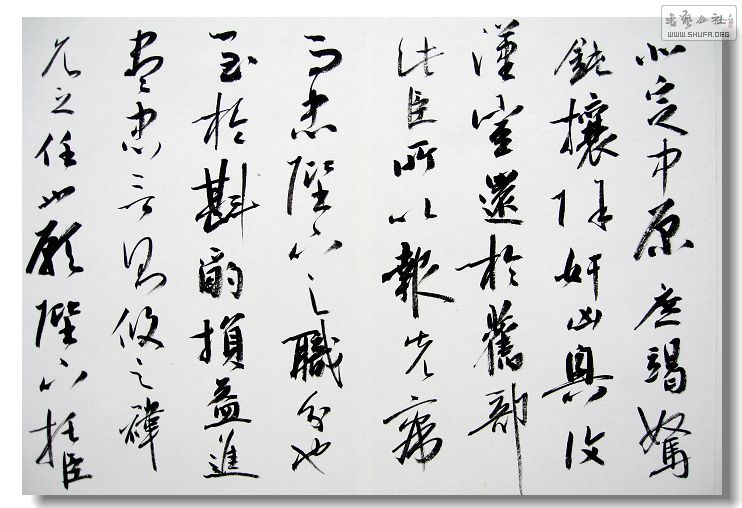 北定中原庶竭駑
鈍攘除奸凶興復
漢室還於舊都
此臣所以報先帝
而忠陛下之職分也
至於斟酌損益進
盡忠言則攸之禕
允之任也願陛下托臣
书艺公社
WWW.SHUFA.ORG